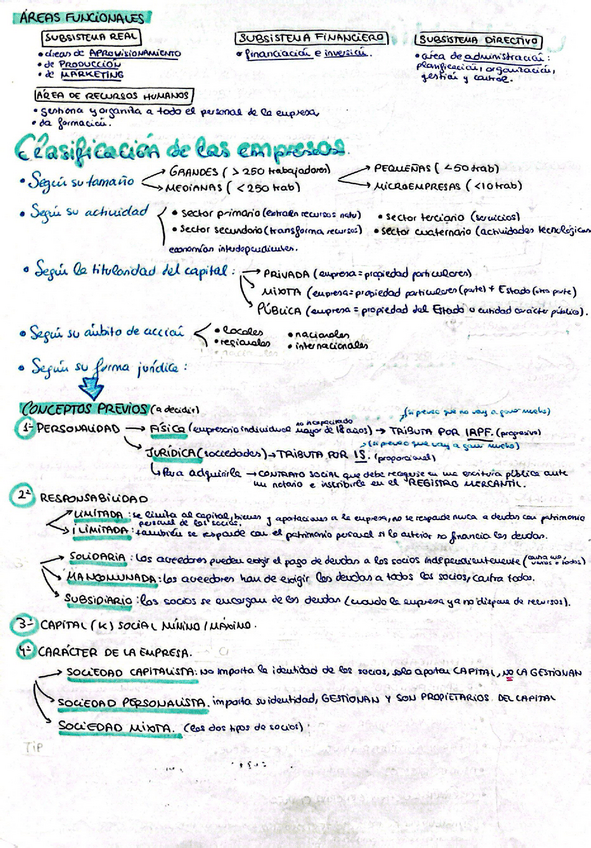 ÁREAS FUNCIONALES
SUBSISTEMA REAL
• áreas de APROVISIONAMIENTO
• de PRODUCCIÓN
• de MARKETING
SUBSISTEMA FINANCIERO
• financiación e inversión.
SUBSISTEMA DIRECTIVO
• área de administración:
planificación, organización,
gestión y control.
ÁREA DE RECURSOS HUMANOS
• gestiona y organiza a todo el personal de la empresa,
• da formación.
Clasificación de las empresas.
• Según su tamaño → GRANDES ( > 250 trabajadores) → PEQUEÑAS ( < 50 trab)
→ MEDIANAS ( < 250 trab) → MICROEMPRESAS ( < 10 trab)
• Según su actividad • sector primario (extraen recursos natu) • sector terciario (servicios)
• sector secundario (transforma recursos) • sector cuaternario (actividades tecnológicas
economías interdependientes.
• Según la titularidad del capital: → PRIVADA (empresa = propiedad particulares)
MIXTA (empresa = propiedad particulares (parte) + Estado (otra parte)
PÚBLICA (empresa = propiedad del Estado o entidad carácter público).
• Según su ámbito de acción • locales • nacionales
• regionales • internacionales
• Según su forma jurídica:
CONCEPTOS PREVIOS (a decidir)
(si pienso que no voy a ganar mucho)
1º PERSONALIDAD → FÍSICA (empresario individual no incapacitado mayor de 18 años) → TRIBUTA POR IRPF. (progresivo)
(si pienso que voy a ganar mucho)
JURÍDICA (sociedades) → TRIBUTA POR IS. (proporcional)
Para adquirirla → CONTRATO SOCIAL que debe recogerse en una escritura pública ante
un notario e inscribirla en el REGISTRO MERCANTIL.
2º RESPONSABILIDAD
LIMITADA: se limita al capital, bienes y aportaciones a la empresa, no se responde nunca a deudas con patrimonio
personal de los socios.
ILIMITADA: también se responde con el patrimonio personal si lo anterior no financia las deudas.
SOLIDARIA: Los acreedores pueden exigir el pago de deudas a los socios independientemente (contra uno, varios o todos)
MANCOMUNADA: Los acreedores han de exigir las deudas a todos los socios, contra todos.
SUBSIDIARIO: los socios se encargan de las deudas (cuando la empresa ya no dispone de recursos).
3º CAPITAL (K) SOCIAL MÍNIMO / MÁXIMO.
4º CARÁCTER DE LA EMPRESA.
SOCIEDAD CAPITALISTA: no importa la identidad de los socios, solo aportan CAPITAL, NO LA GESTIONAN
SOCIEDAD PERSONALISTA. importa su identidad, GESTIONAN Y SON PROPIETARIOS DEL CAPITAL
SOCIEDAD MIXTA. (los dos tipos de socios).
TIP